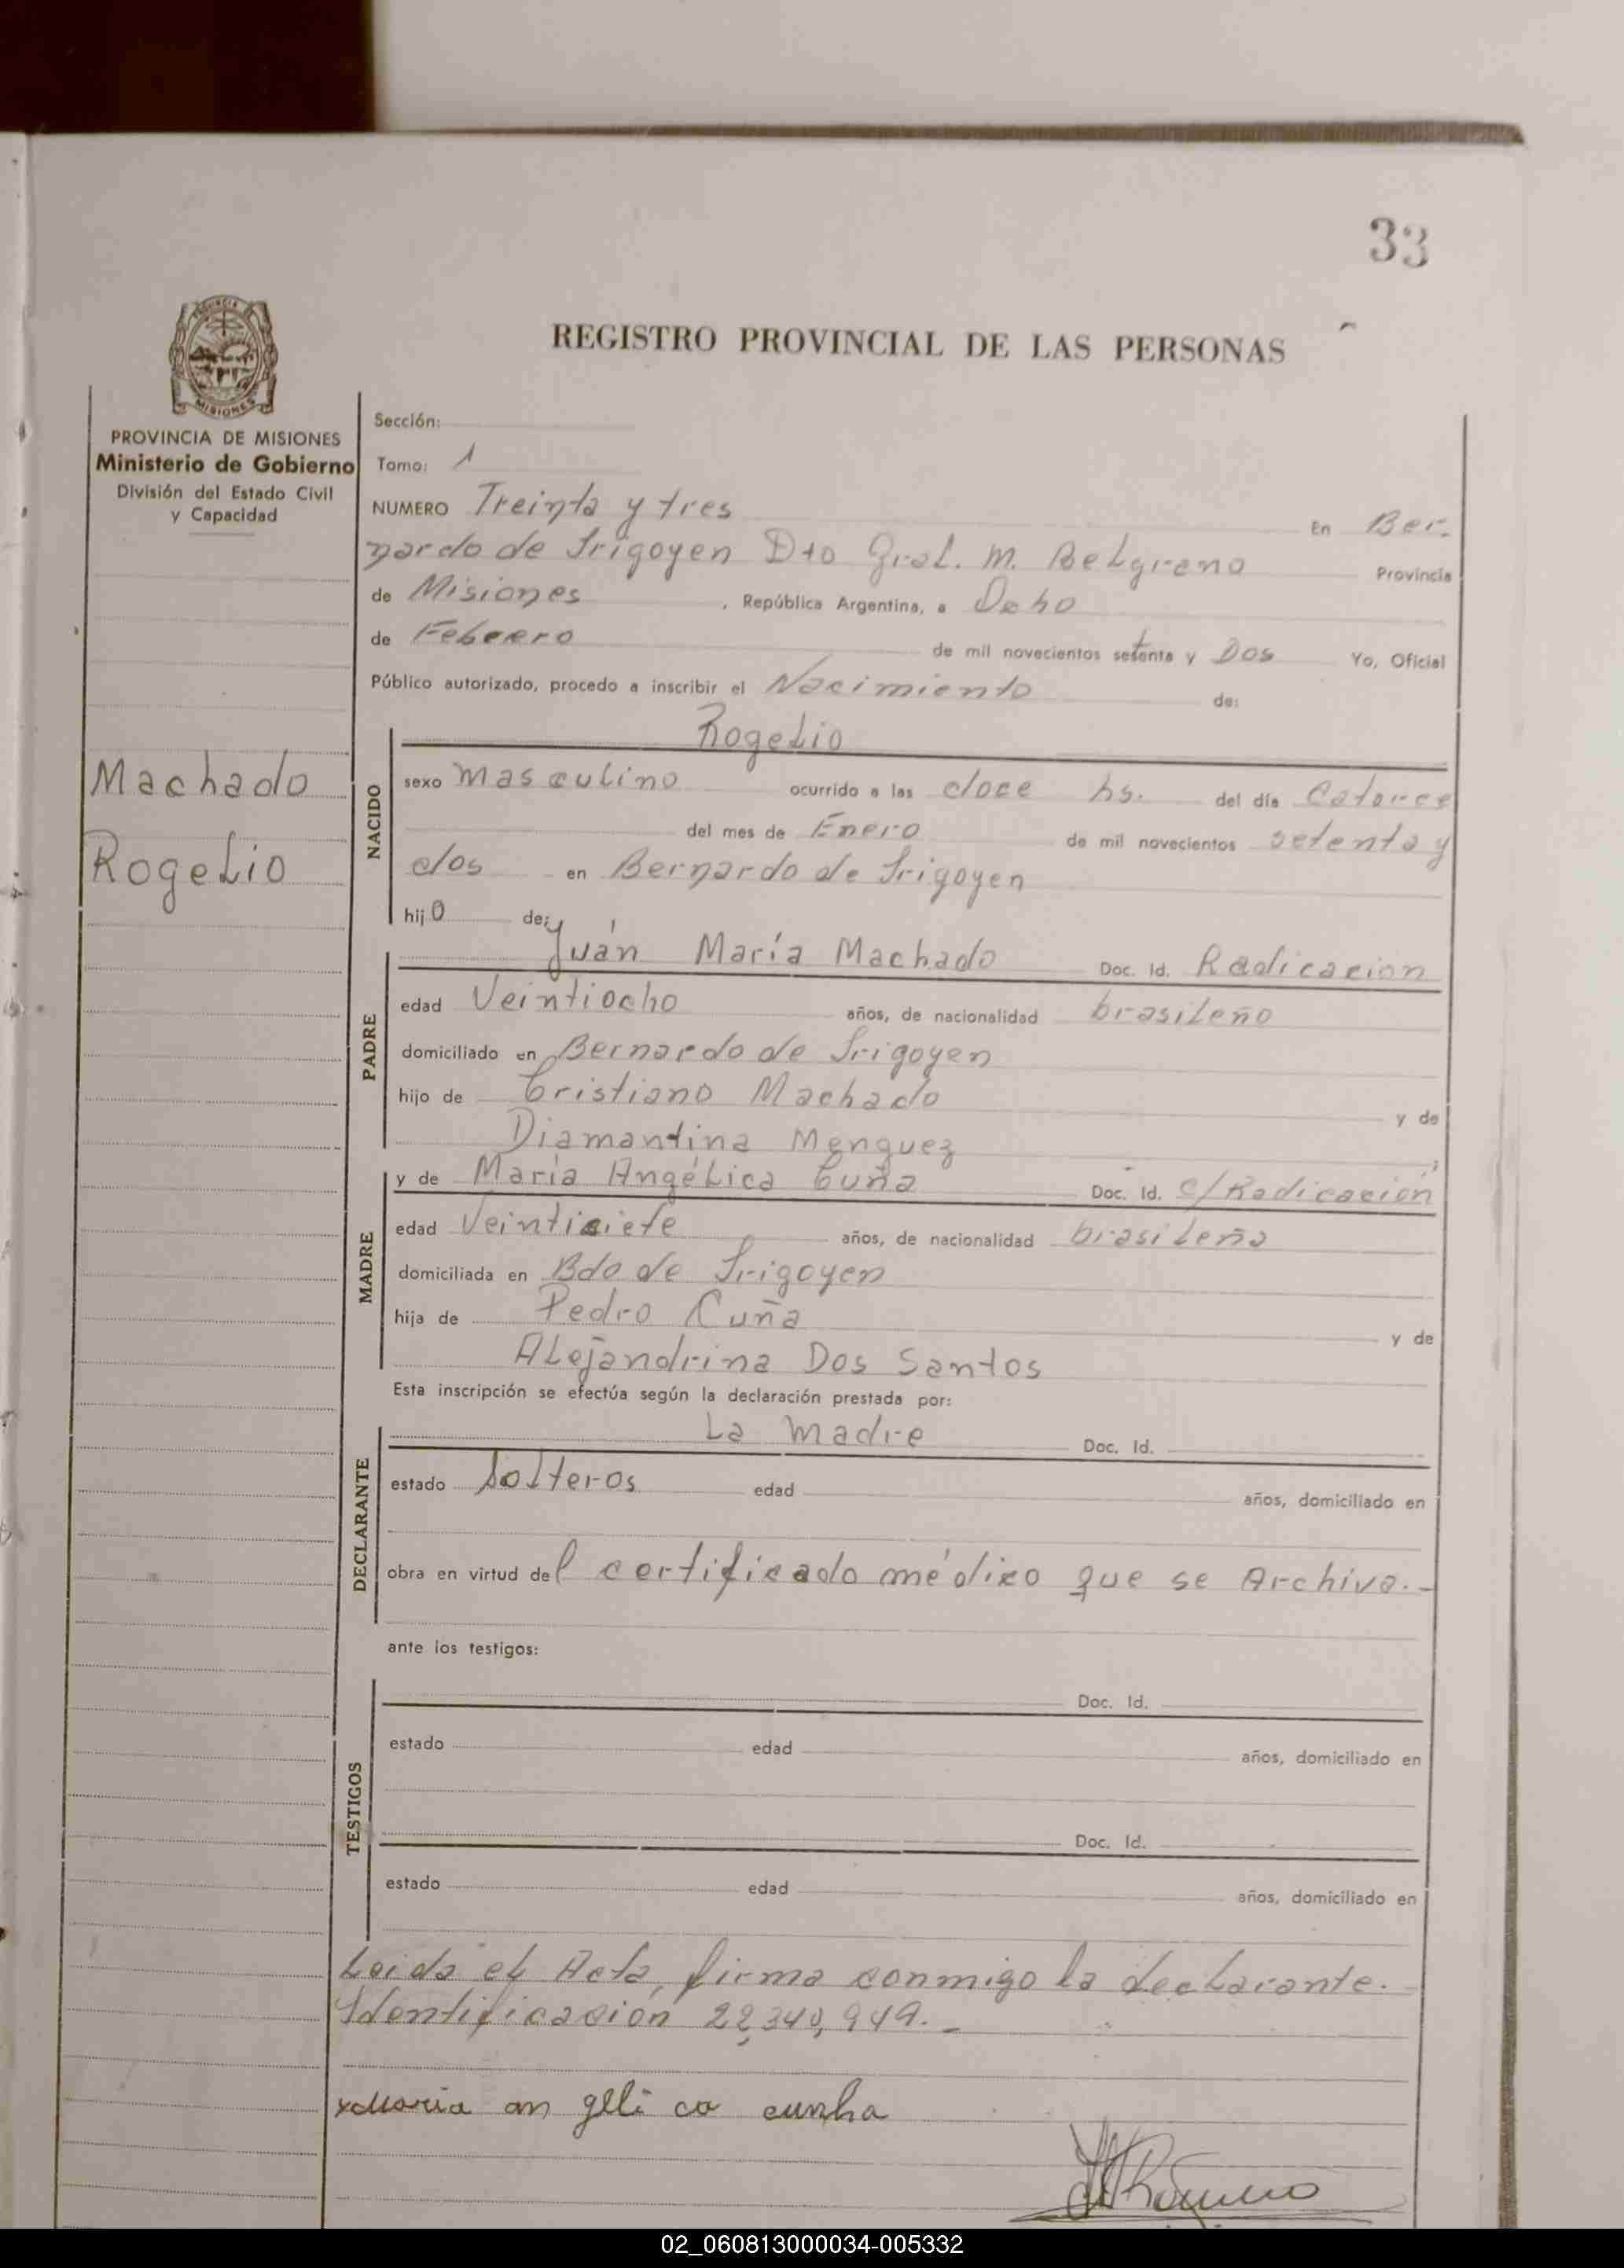 33
REGISTRO PROVINCIAL DE LAS PERSONAS
PROVINCIA DE MISIONES
Ministerio de Gobierno
División del Estado Civil
y Capacidad
Machado
Rogelio
Sección:
Tomo: 1
NUMERO Treinta y tres En Ber-
nardo de Irigoyen Dto Gral. M. Belgrano Provincia
de Misiones, República Argentina, a Ocho
de Febrero de mil novecientos setenta y Dos Yo, Oficial
Público autorizado, procedo a inscribir el Nacimiento de:
NACIDO
Rogelio
sexo masculino ocurrido a las doce hs. del día Catorce
del mes de Enero de mil novecientos setenta y
dos en Bernardo de Irigoyen
hijo de:
PADRE
Juán María Machado Doc. Id. Radicacion
edad Veintiocho años, de nacionalidad brasileño
domiciliado en Bernardo de Irigoyen
hijo de Cristiano Machado y de
Diamantina Menguez;
MADRE
y de María Angélica Cuña Doc. Id. C/Radicación
edad Veintisiete años, de nacionalidad brasileña
domiciliada en Bdo de Irigoyen
hija de Pedro Cuña y de
Alejandrina Dos Santos
Esta inscripción se efectúa según la declaración prestada por:
DECLARANTE
La madre Doc. Id.
estado Solteros edad años, domiciliado en
obra en virtud del certificado médico que se Archiva.-
ante los testigos:
TESTIGOS
Doc. Id.
estado edad años, domiciliado en
Doc. Id.
estado edad años, domiciliado en
Leida el Acta, firma conmigo la declarante.
Identificación 22,340,949.-
x Maria an geli ca cunha
02_060813000034-005332